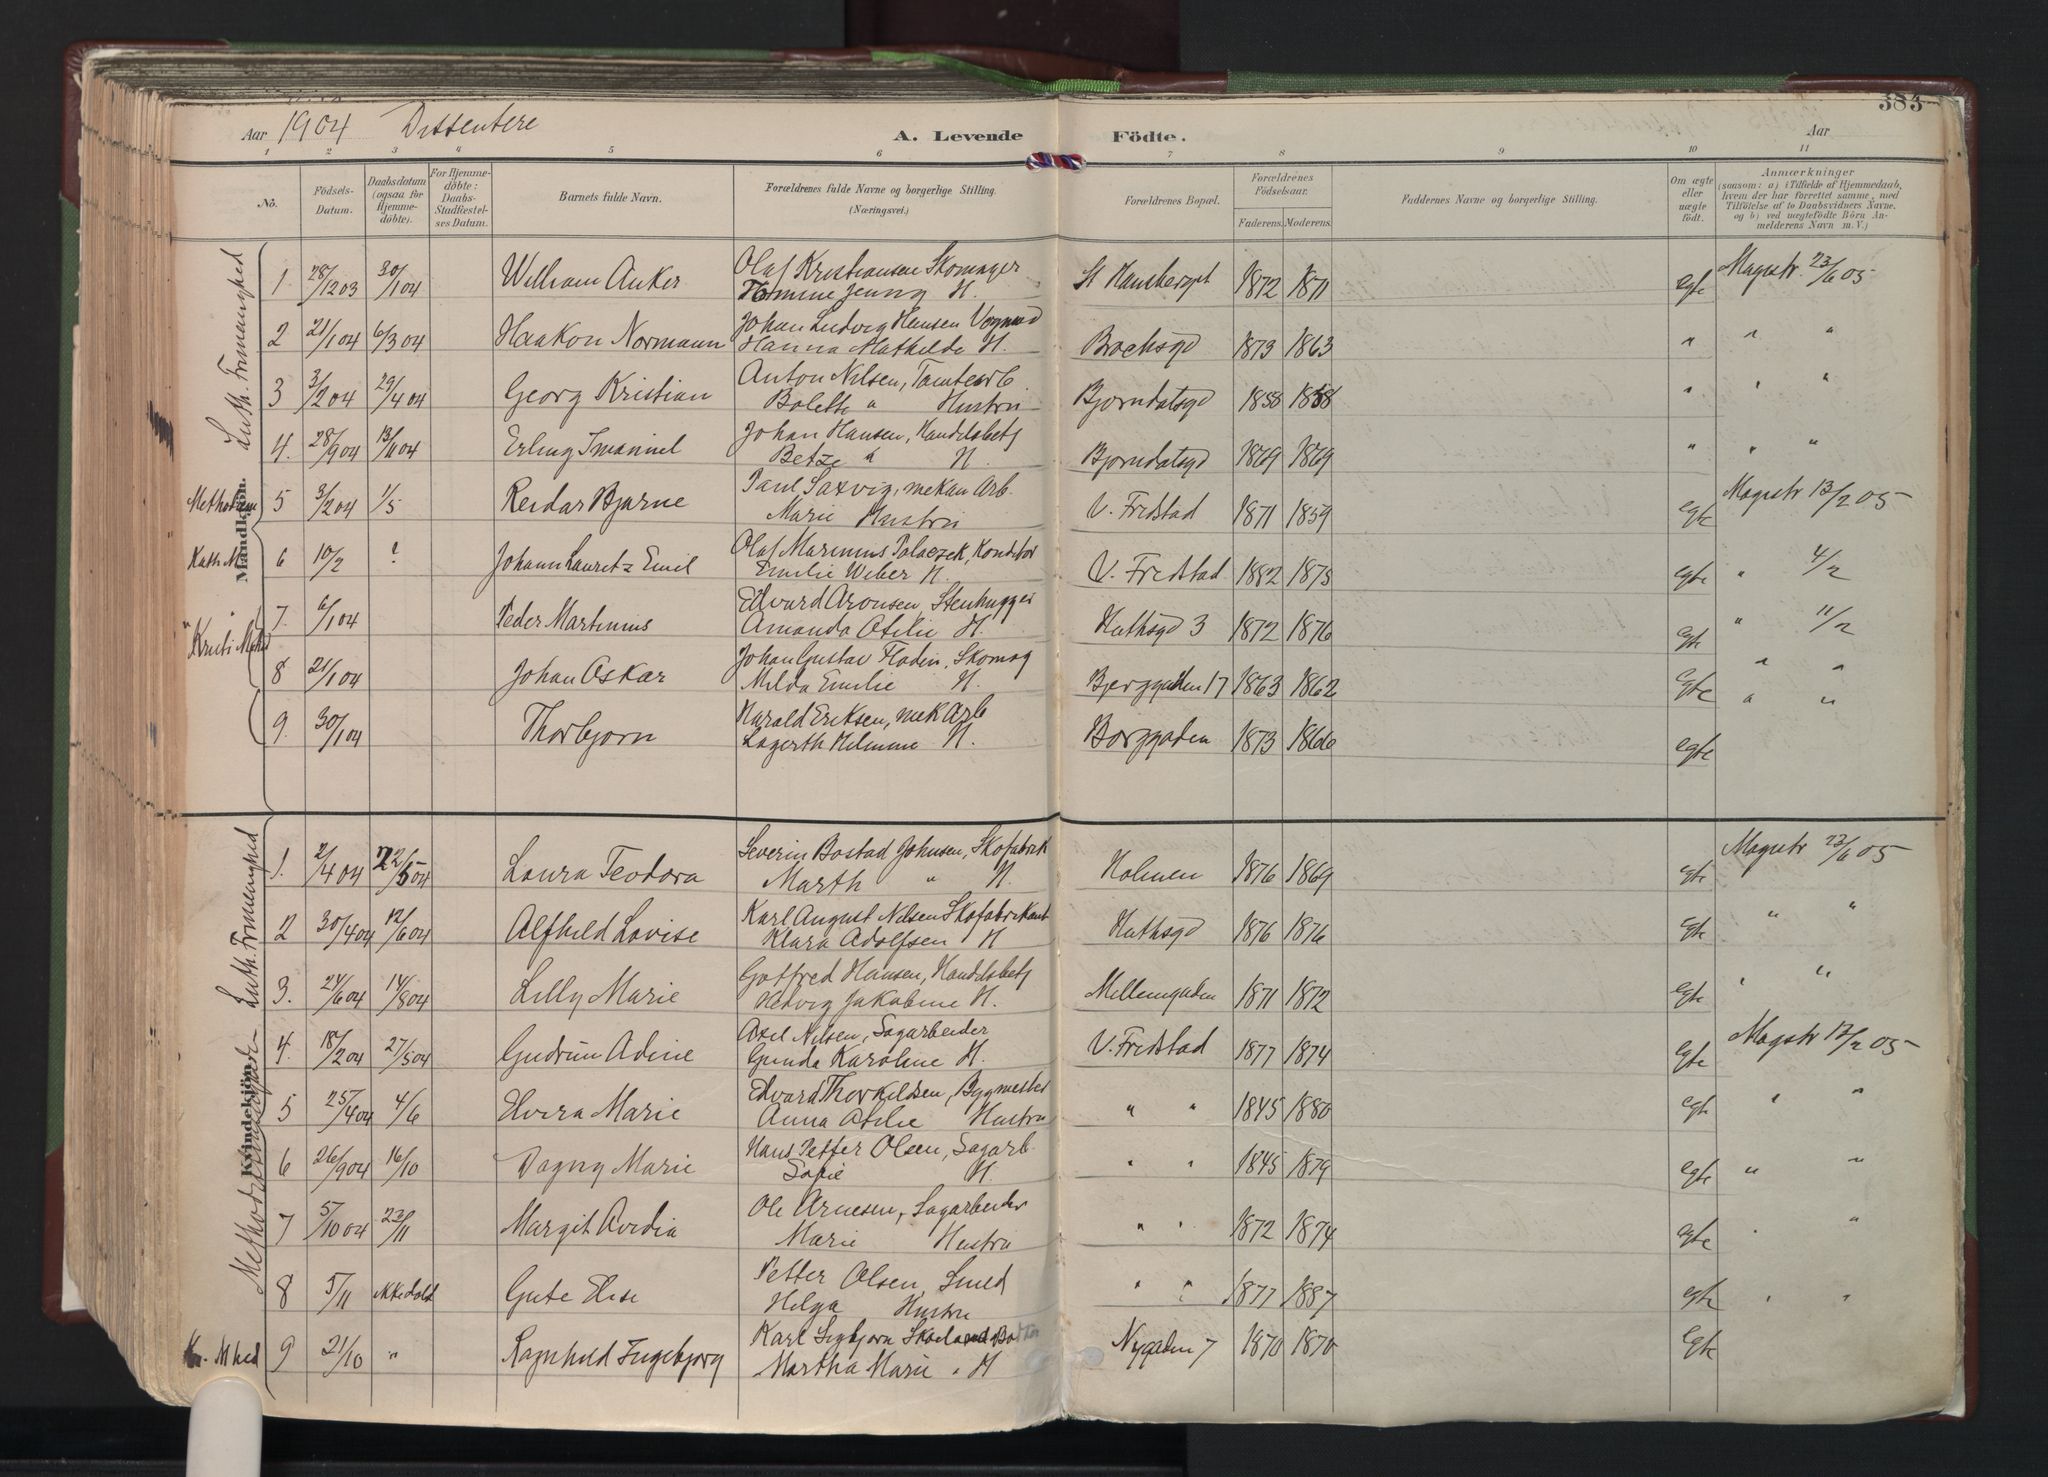 383
Aar 1904 Dissentere A. Levende Födte. Aar
1 2 3 4 5 6 7 8 9 10 11
No. Födsels-Datum. Daabsdatum (ogsaa for Hjemme-döbte). For Hjemme-döbte: Daabs-Stadfæstel-ses Datum. Barnets fulde Navn. Forældrenes fulde Navne og borgerlige Stilling. (Næringsvei.) Forældrenes Bopæl. Forældrenes Födselsaar. Faderens. Moderens. Faddernes Navne og borgerlige Stilling. Om ægte eller uægte födt. Anmærkninger (saasom: a) i Tilfælde af Hjemmedaab, hvem der har forrettet samme, med Tilföielse af to Daabsvidners Navne, og b) ved uægtefödte Börn An-melderens Navn m. V.)
Mandkjön.
Luth. Frimenighed
1. 28/12 03 30/1 04 William Anker Olaf Kristiansen Skomager St Hansberget 1872 1871 egte Magistr. 23/6 05
Jenny H.
2 21/1 04 6/3 04 Haakon Normann Johan Ludvig Hansen Brochsgd 1873 1863 " " "
Hanna Mathilde H.
3 3/2 04 29/4 04 Georg Kristian Anton Nilsen, Tomtearb. Bjorndalsgd 1858 1858 " " "
Bolette " Hustru
4. 28/9 04 13/11 04 Erling Imanuel Johan Hansen, Handelsbetj Bjorndalsgd 1869 1869 " " "
Betze " H.
5 3/2 04 1/5 Reidar Bjarne Paul Saxvig, mekan Arb. V. Fredstad 1871 1859 egte Magistr 13/2 05
Marie Hustru
6 10/2 ? Johann Lauretz Emil Olaf Marinius Palaczek, Konditor V. Fredstad 1882 1875 egte " 4/2
Emilie Weber H.
7. 6/1 04 Peder Martinius Edvard Aronsen, Stenhugger Huthsgd 3 1872 1876 egte " 11/2
Amanda Otilie H.
8 21/1 04 Johan Oskar Johan Gustav Flodin, Skomag Bjerggaden 17 1863 1862 Egte " "
Milda Emilie H.
9. 30/1 04 Thorbjorn Harald Eriksen, mek Arb Borggaden 1873 1866 egte " "
Lagerth Hilmine H.
Kvindekjön.
Luth. Frimenighed
1. 2/4 04 22/5 04 Laura Teodora Severin Bostad Johnsen, Skofabrik Holmen 1876 1869 egte Magistr 23/6 05
Marth " H.
2 30/4 04 12/6 04 Alfhild Lovise Karl August Nilsen Skofabrikant Huthsgd 1876 1876 Egte " "
Klara Adolfsen H
3. 24/6 04 14/8 04 Lilly Marie Gotfred Hansen, Handelsbetj Mellemgaden 1871 1872 Egte " "
Hedvig Jakobine H.
4. 18/2 04 27/5 04 Gudrun Adine Axel Nilsen, Sagarbeider V. Fredstad 1877 1874 Egte Magstr 13/2 05
Gunda Karoline H.
5 25/4 04 4/6 Elvira Marie Edvard Thorkildsen, Bygmester " " 1845 1880 egte " "
Anna Otilie Hustru
6 26/9 04 16/10 Dagny Marie Hans Petter Olsen, Sagarb. " " 1845 1879 egte " "
Sofie H.
7 5/10 04 23/11 Margit Avedia Ole Arnesen, Sagarbeider " " 1872 1874 egte " "
Marie Hustru
8 5/11 ikke døbt Elise Petter Olsen, Smed " " 1877 1887 egte " "
Helga Hustru
9 21/10 " Ragnhild Ingebjorg Karl Sigbjorn Nygaden 7 1870 1870 Egte
Martha Marie " H